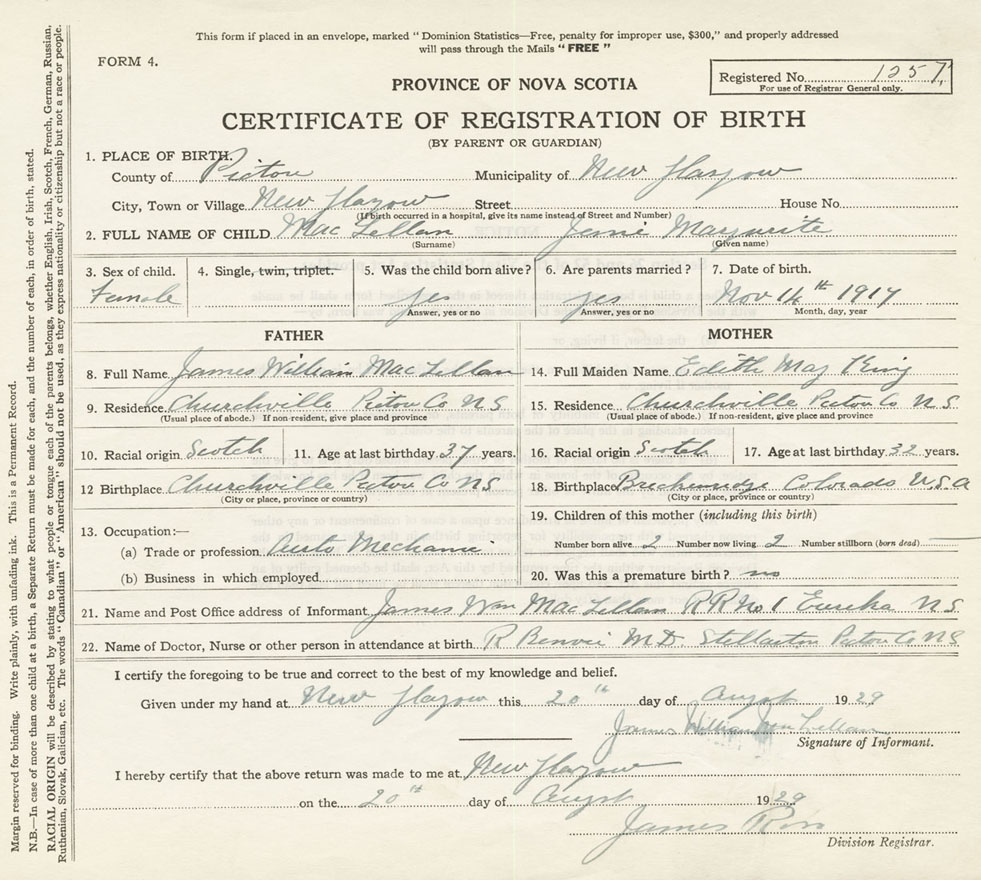 This form if placed in an envelope, marked "Dominion Statistics—Free, penalty for improper use, $300," and properly addressed
will pass through the Mails "FREE"
FORM 4.
Registered No. 1257
For use of Registrar General only.
PROVINCE OF NOVA SCOTIA
CERTIFICATE OF REGISTRATION OF BIRTH
(BY PARENT OR GUARDIAN)
1. PLACE OF BIRTH.
County of Pictou Municipality of New Glasgow
City, Town or Village New Glasgow Street House No.
(If birth occurred in a hospital, give its name instead of Street and Number)
2. FULL NAME OF CHILD MacLellan Marguerite
(Surname) (Given name)
3. Sex of child. 4. Single, twin, triplet. 5. Was the child born alive? 6. Are parents married? 7. Date of birth.
Female yes yes Nov 14th 1917
Answer, yes or no Answer, yes or no Month, day, year
FATHER MOTHER
8. Full Name James William MacLellan 14. Full Maiden Name Edith May King
9. Residence Churchville Pictou Co N S 15. Residence Churchville Pictou Co N.S.
(Usual place of abode) If non-resident, give place and province (Usual place of abode.) If non-resident, give place and province
10. Racial origin Scotch 11. Age at last birthday 37 years. 16. Racial origin Scotch 17. Age at last birthday 32 years.
12 Birthplace Churchville Pictou Co NS 18. Birthplace Breckenridge Colorado U.S.A
(City or place, province or country) (City or place, province or country)
13. Occupation:— 19. Children of this mother (including this birth)
(a) Trade or profession Auto Mechanic Number born alive 2 Number now living 2 Number stillborn (born dead)
(b) Business in which employed 20. Was this a premature birth? no
21. Name and Post Office address of Informant James Wm MacLellan RR No 1 Eureka N.S.
22. Name of Doctor, Nurse or other person in attendance at birth R Benvie M.D. Stellarton Pictou Co NS
I certify the foregoing to be true and correct to the best of my knowledge and belief.
Given under my hand at New Glasgow this 20th day of August 1929
James William MacLellan
Signature of Informant.
I hereby certify that the above return was made to me at New Glasgow
on the 20th day of August 1929
James
Division Registrar.
Margin reserved for binding. Write plainly, with unfading ink. This is a Permanent Record.
N.B.—In case of more than one child at a birth, a Separate Return must be made for each, and the number of each, in order of birth, stated.
RACIAL ORIGIN will be described by stating to what people or tongue each of the parents belongs, whether English, Irish, Scotch, French, German, Russian,
Ruthenian, Slovak, Galician, etc. The words "Canadian" or "American" should not be used, as they express nationality or citizenship but not a race or people.